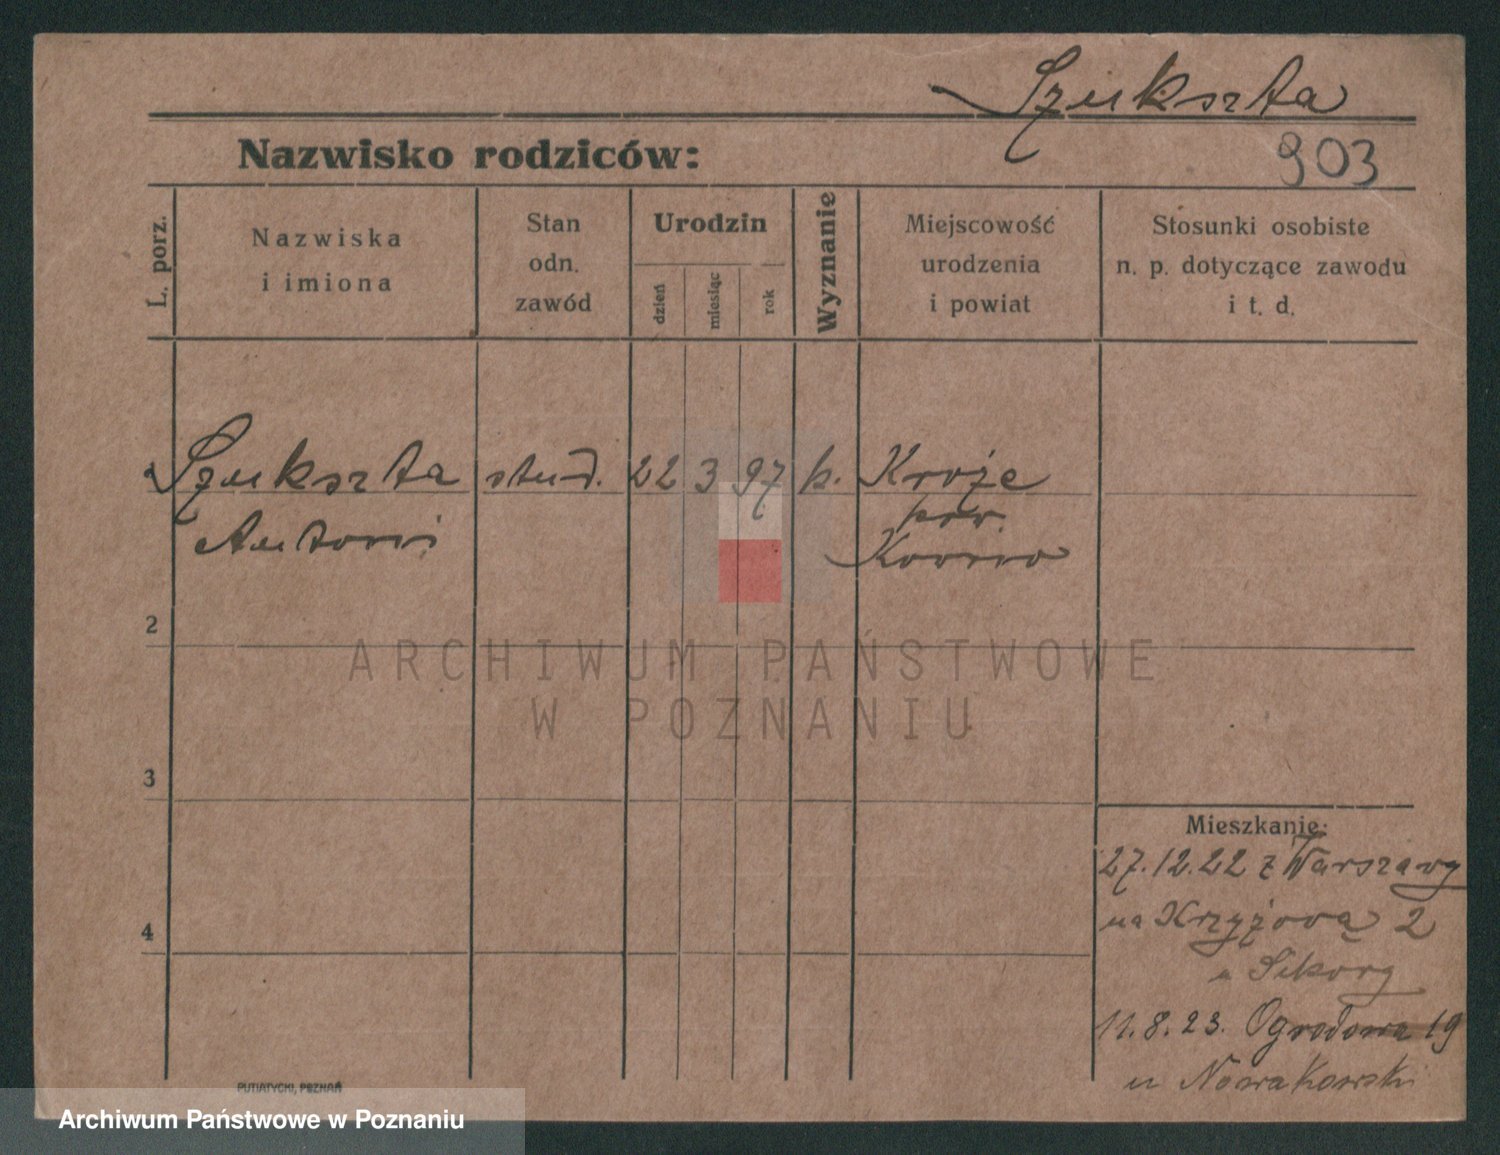 Szukszta
Nazwisko rodziców:
903
L. porz.
Nazwiska
i imiona
Stan
odn.
zawód
Urodzin
dzień
miesiąc
rok
Wyznanie
Miejscowość
urodzenia
i powiat
Stosunki osobiste
n. p. dotyczące zawodu
i t. d.
Szukszta stud. 22 3 97 k. Kroże
Antoni
pow.
Kowno
2
ARCHIWUM PAŃSTWOWE
W POZNANIU
3
4
Mieszkanie:
27.12.22 z Warszawy
na Krzyżową 2
u Sikory
11.8.23. Ogrodowa 19
u Nowakowski
PUTIATYCKI, POZNAŃ
Archiwum Państwowe w Poznaniu